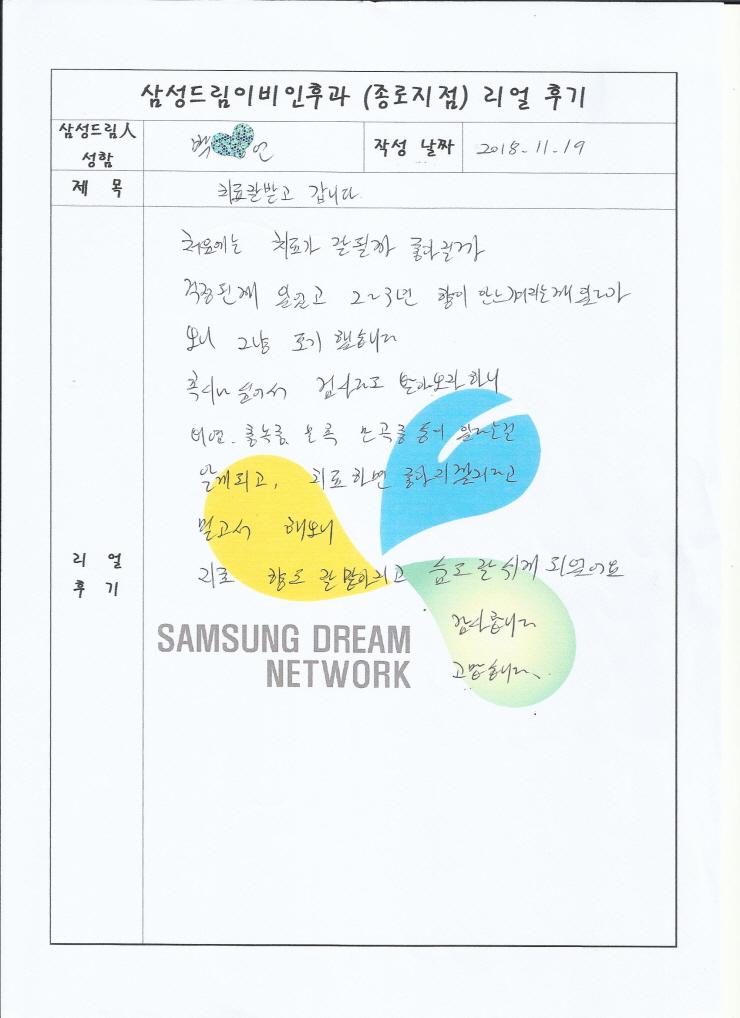 삼성드림이비인후과 (종로지점) 리얼 후기
삼성드림人 성함
백 연
작성 날짜
2018-11-19
제 목
치료잘받고 갑니다
리 얼 후 기
처음에는 치료가 잘될까 좋아질까
걱정된게 있었고 2~3년 향이 안느껴지는채 살다가
보니 그냥 포기 했습니다
혹시나 싶어서 검사라도 받아보라 하니
비염. 축농증, 만곡증 등이 있다는걸
알게되고, 치료하면 좋아질거라고
믿고서 해보니
치료 향도 잘 맡아지고 숨도 잘 쉬게 되었어요
감사합니다
고맙습니다.
SAMSUNG DREAM
NETWORK